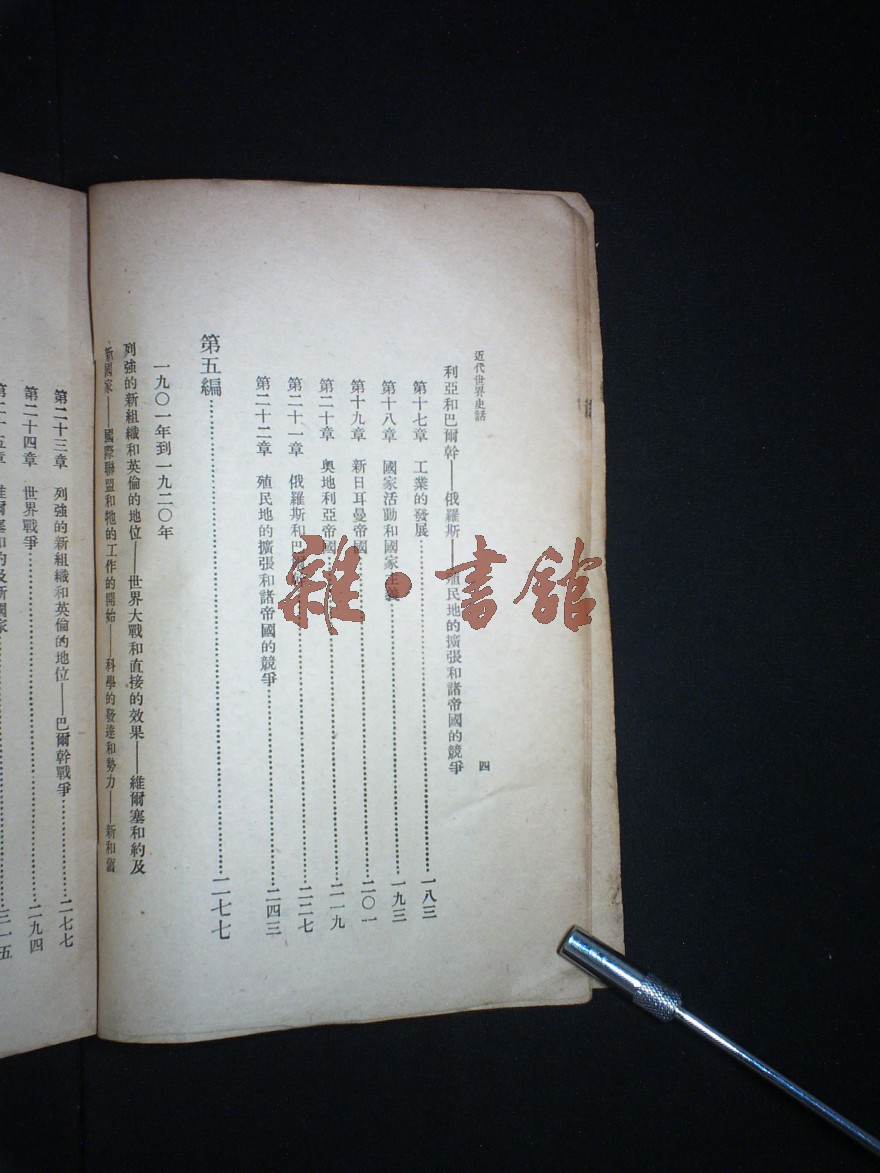 近代世界史話
四
利亞和巴爾幹——俄羅斯——殖民地的擴張和諸帝國的競爭
第十七章 工業的發展……一八三
第十八章 國家活動和國家主義……一九三
第十九章 新日耳曼帝國……二〇一
第二十章 奧地利亞帝國……二一九
第二十一章 俄羅斯和巴……二二七
第二十二章 殖民地的擴張和諸帝國的競爭……二四三
第五編……二七七
一九〇一年到一九二〇年
列強的新組織和英倫的地位——世界大戰和直接的效果——維爾塞和約及
新國家——國際聯盟和牠的工作的開始——科學的發達和勢力——新和舊
第二十三章 列強的新組織和英倫的地位——巴爾幹戰爭……二七七
第二十四章 世界戰爭……二九四
第二十五章 維爾塞和約及新國家……三一五
雜·書館